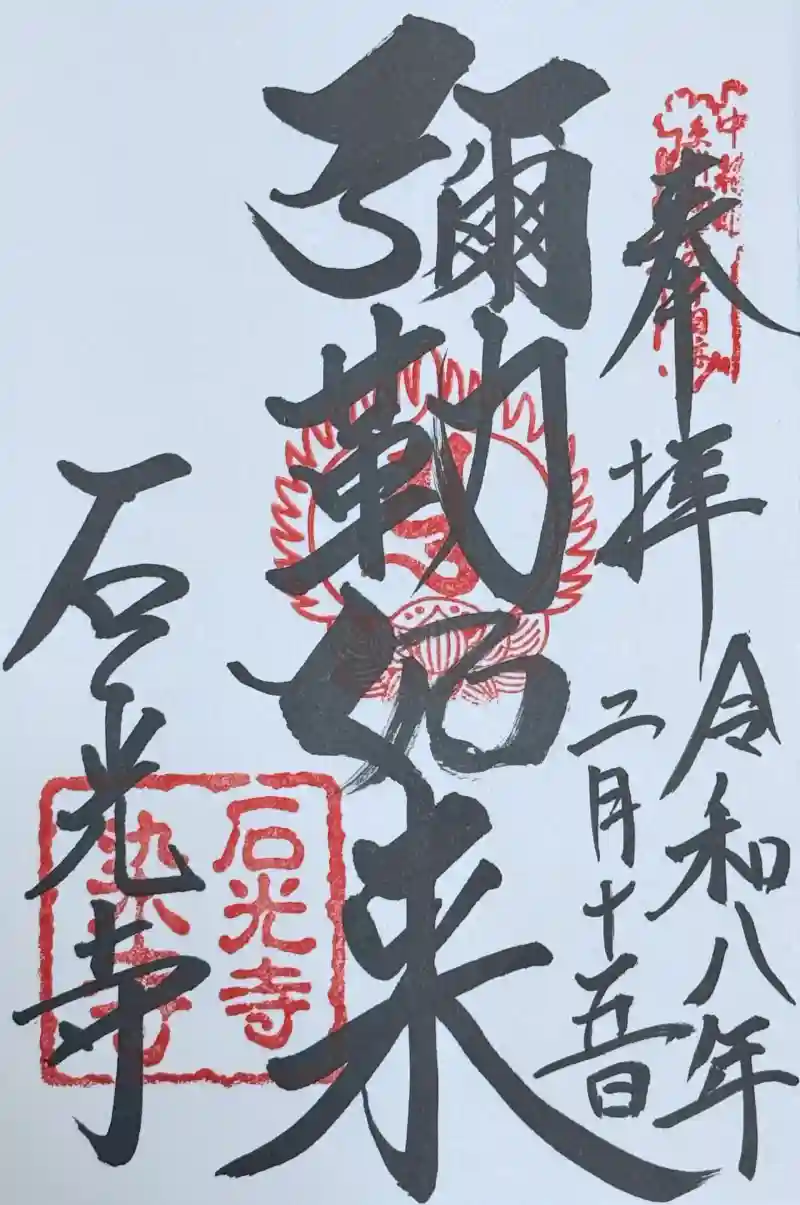 奉拝
令和八年
二月十五日
彌勒如来
石光寺
石光寺
染寺